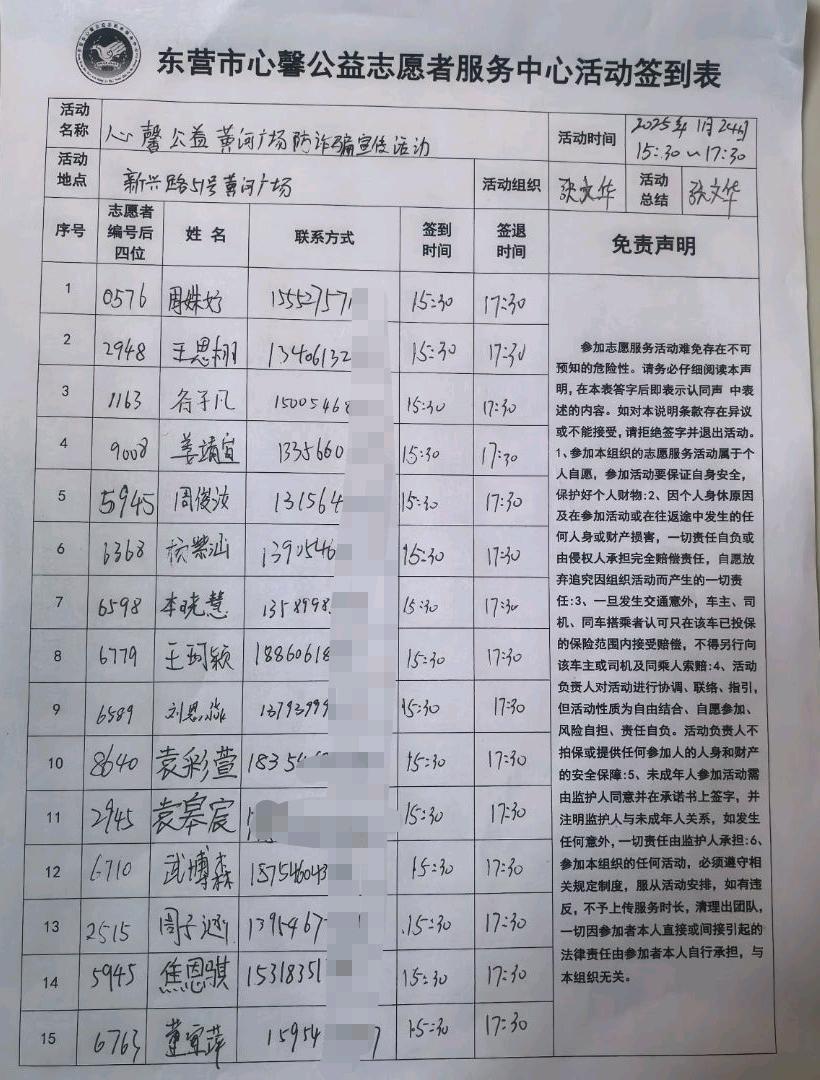 东营市心馨公益志愿者服务中心活动签到表
活动名称 心馨公益黄河广场防诈骗宣传活动 活动时间 2025年1月24日 15:30~17:30
活动地点 新兴路51号黄河广场 活动组织 张文华 活动总结 张文华
序号 志愿者编号后四位 姓名 联系方式 签到时间 签退时间 免责声明
1 0576 周姝妤 15527571 15:30 17:30
2 2948 王思栩 13406132 15:30 17:30
3 1163 谷子凡 15005468 15:30 17:30
4 9008 姜靖宜 1335660 15:30 17:30
5 5945 周俊汝 131564 15:30 17:30
6 6368 1390546 15:30 17:30
7 6598 李晓慧 1358998 15:30 17:30
8 6779 王珂颖 18860618 15:30 17:30
9 6589 刘思淼 13793999 15:30 17:30
10 8640 袁彩萱 18354 15:30 17:30
11 2945 袁皋宸 15:30 17:30
12 6710 武博森 187546043 15:30 17:30
13 2515 周子涵 1395467 15:30 17:30
14 5945 焦恩骐 15318351 15:30 17:30
15 6763 董宜萍 15954 7 15:30 17:30
参加志愿服务活动难免存在不可
预知的危险性。请务必仔细阅读本声
明，在本表答字后即表示认同声 中表
述的内容。如对本说明条款存在异议
或不能接受，请拒绝签字并退出活动。
1、参加本组织的志愿服务活动属于个
人自愿，参加活动要保证自身安全，
保护好个人财物:2、因个人身休原因
及在参加活动或在往返途中发生的任
何人身或财产损害，一切责任自负或
由侵权人承担完全赔偿责任，自愿放
弃追究因组织活动而产生的一切责
任:3、一旦发生交通意外，车主、司
机、同车搭乘者认可只在该车已投保
的保险范围内接受赔偿，不得另行向
该车主或司机及同乘人索赔:4、活动
负责人对活动进行协调、联络、指引，
但活动性质为自由结合、自愿参加、
风险自担、责任自负。活动负责人不
拍保或提供任何参加人的人身和财产
的安全保障:5、未成年人参加活动需
由监护人同意并在承诺书上签字，并
注明监护人与未成年人关系，如发生
任何意外，一切责任由监护人承担:6、
参加本组织的任何活动，必须遵守相
关规定制度，服从活动安排，如有违
反，不予上传服务时长，清理出团队，
一切因参加者本人直接或间接引起的
法律责任由参加者本人自行承担，与
本组织无关。